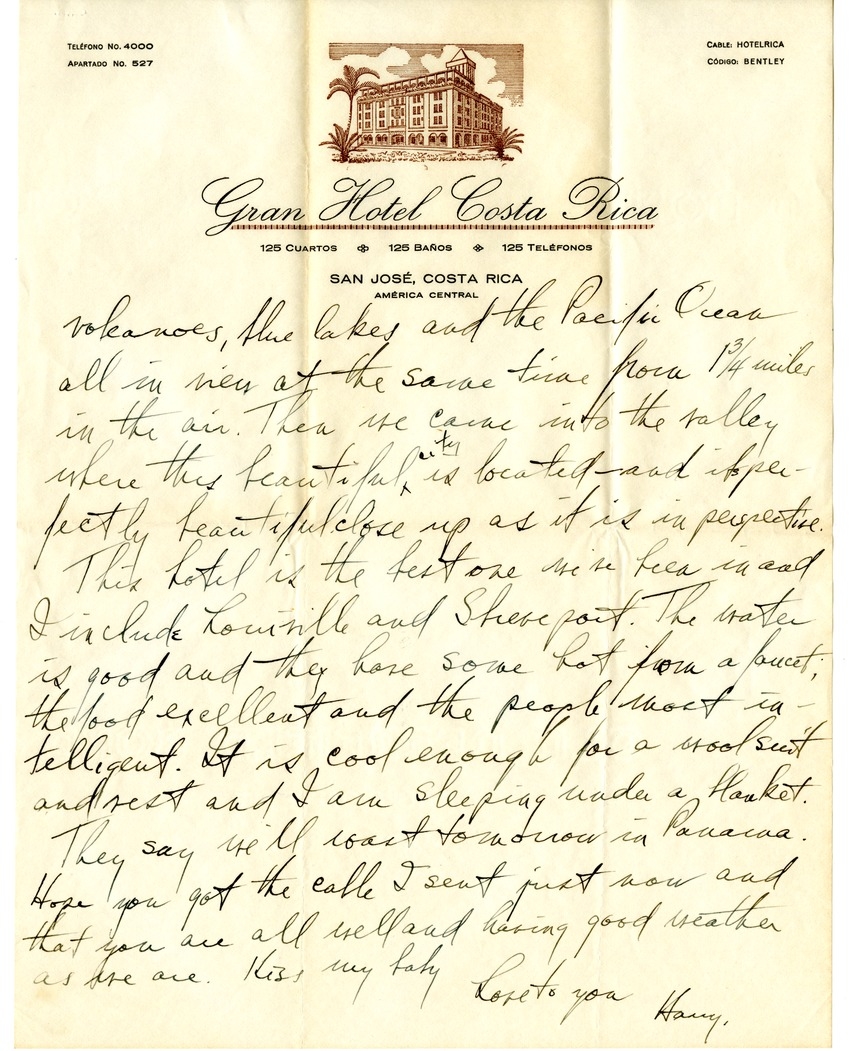 TELÉFONO No. 4000
APARTADO No. 527
CABLE: HOTELRICA
CÓDIGO: BENTLEY
Gran Hotel Costa Rica
125 CUARTOS 125 BAÑOS 125 TELÉFONOS
SAN JOSÉ, COSTA RICA
AMÉRICA CENTRAL
volcanoes, blue lakes and the Pacific Ocean
all in view at the same time from 1 3/4 miles
in the air. Then we came into the valley
where this beautiful city is located - and it's per-
fectly beautiful close up as it is in perspective.
This hotel is the best one we've been in and
I include Louisville and Shreveport. The water
is good and they have some hot from a faucet;
the food excellent and the people most in-
telligent. It is cool enough for a wool suit
and vest and I am sleeping under a blanket.
They say we'll roast tomorrow in Panama.
Hope you got the cable I sent just now and
that you are all well and having good weather
as we are. Kiss my baby
Love to you
Harry.